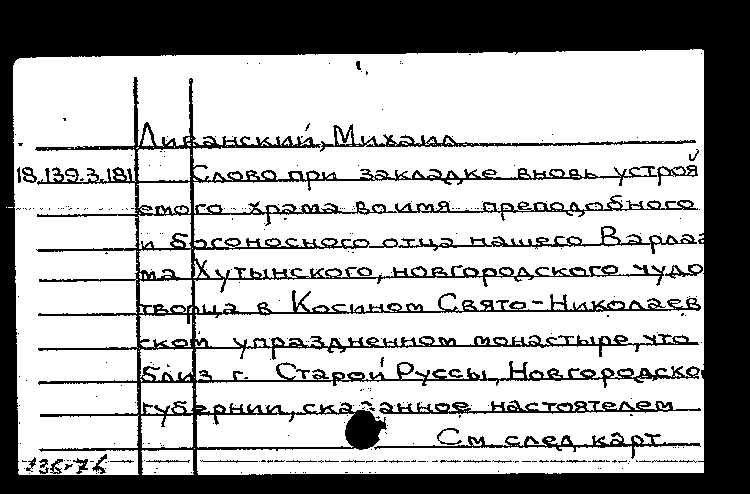 Ливанский, Михаил
18.139.3.181 Слово при закладке вновь устроя
емого храма во имя преподобного
и богоносного отца нашего Варлаа
ма Хутынского, новгородского чудо
творца в Косином Свято-Николаев
ском упраздненном монастыре, что
близ г. Старой Руссы, Новгородско
губернии, сказанное настоятелем
См. след. карт.
136-76